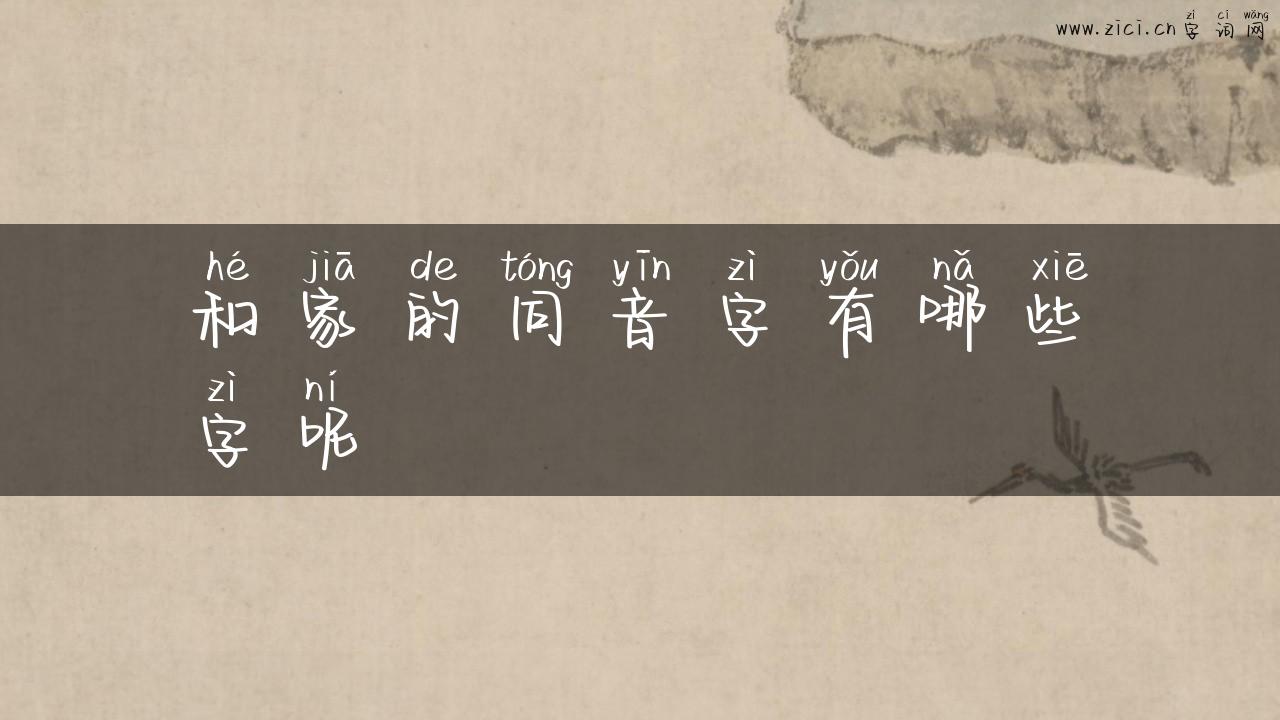 zì cí wǎng
www.zici.cn 字 词 网
hé jiā de tóng yīn zì yǒu nǎ xiē
和 家 的 同 音 字 有 哪 些
zì ní
字 呢